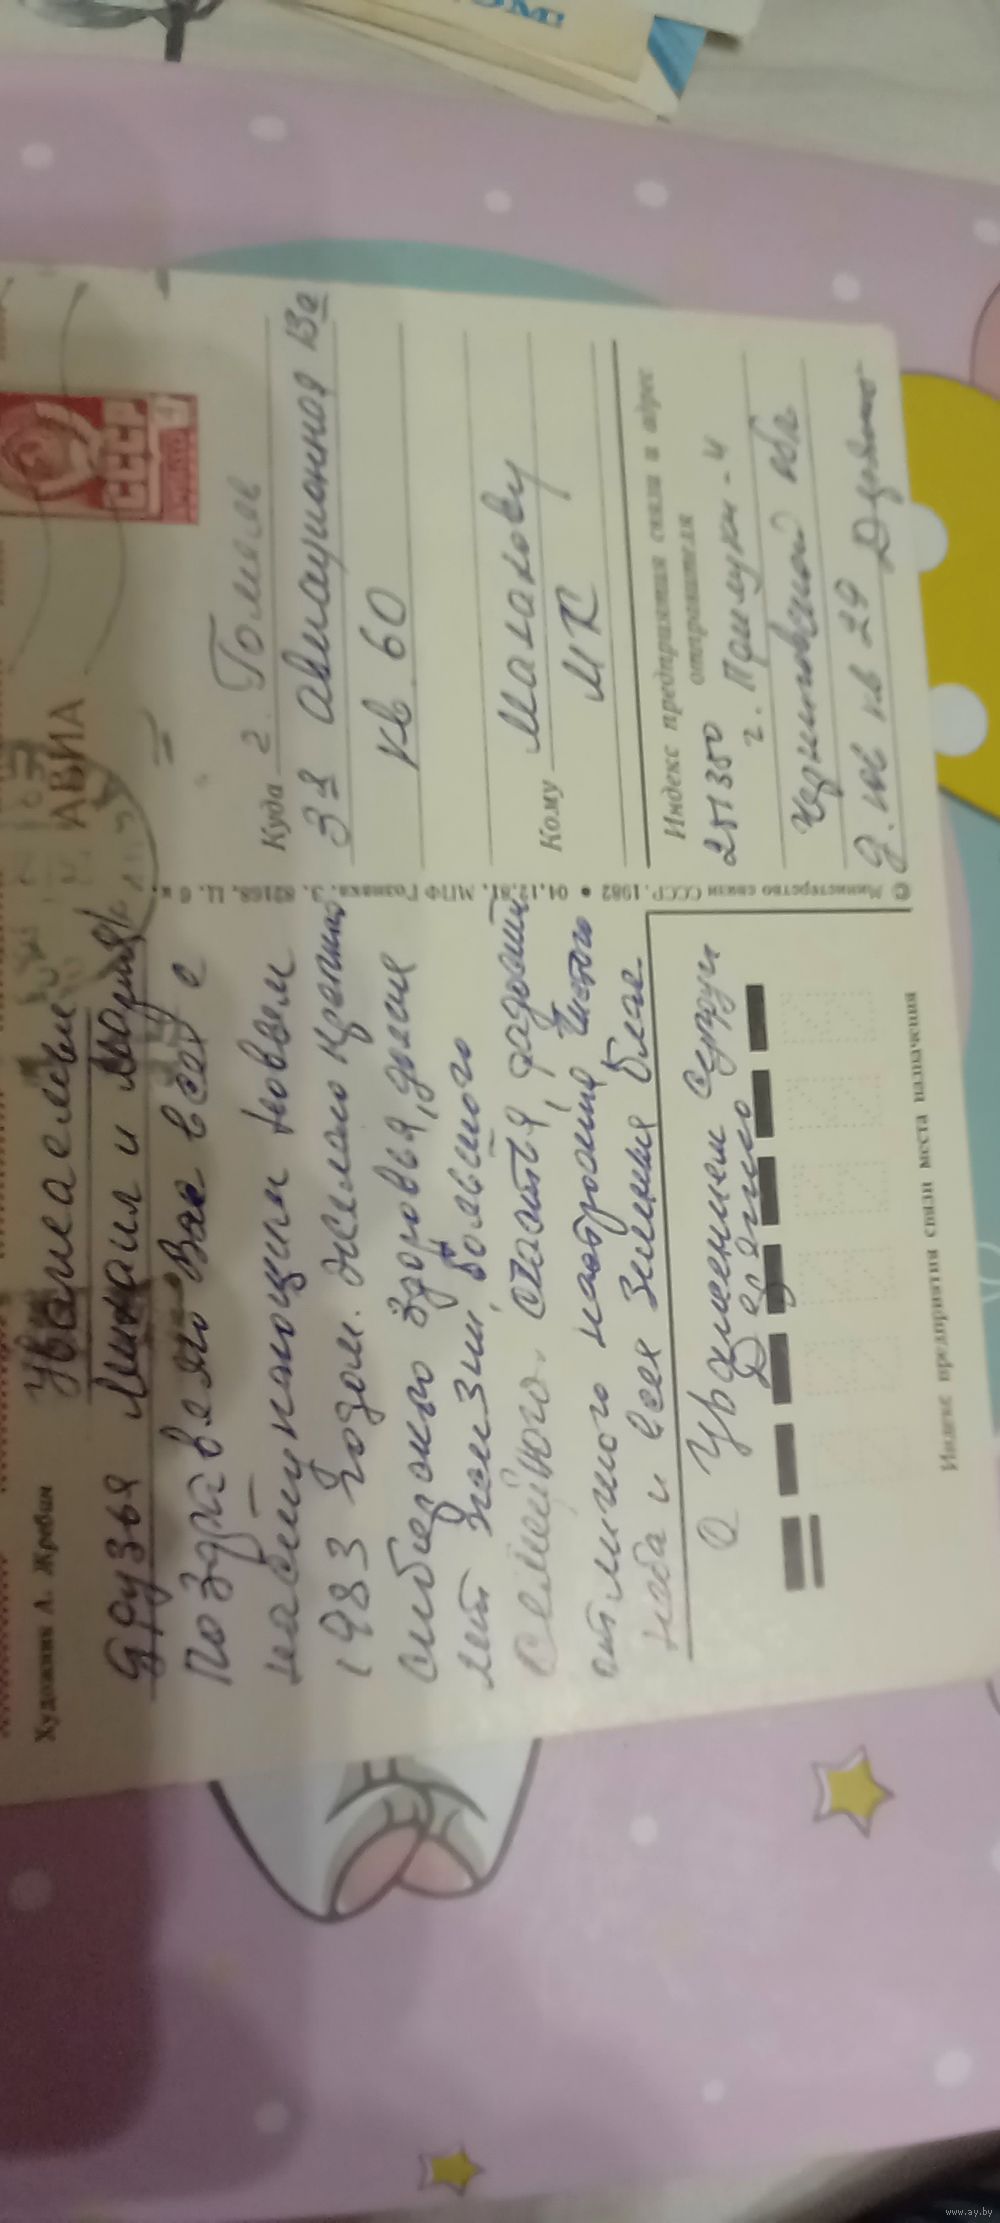 Художник А. Жребин
АВИА
СССР
Уважаемые
друзья Михаил и Мария!
Поздравляю Вас всех с
наступающим Новым
1983 годом. Желаю крепкого
сибирского здоровья, долгих
лет жизни, большого
семейного счастья, радости
отличного настроения чистого
неба и всех земных благ.
С уважением супруги
Куда г. Гомель
3я авиационная 13а
кв. 60
Кому Малакову
М К
Индекс предприятия связи и адрес
отправителя
251350
г. Прилуки-4
Черниговской обл
кв 29
© Министерство связи СССР. 1982 • 04.12.81. МПФ Гознака. З. 82168. Ц. 6 к.
Индекс предприятия связи места назначения
www.ay.by